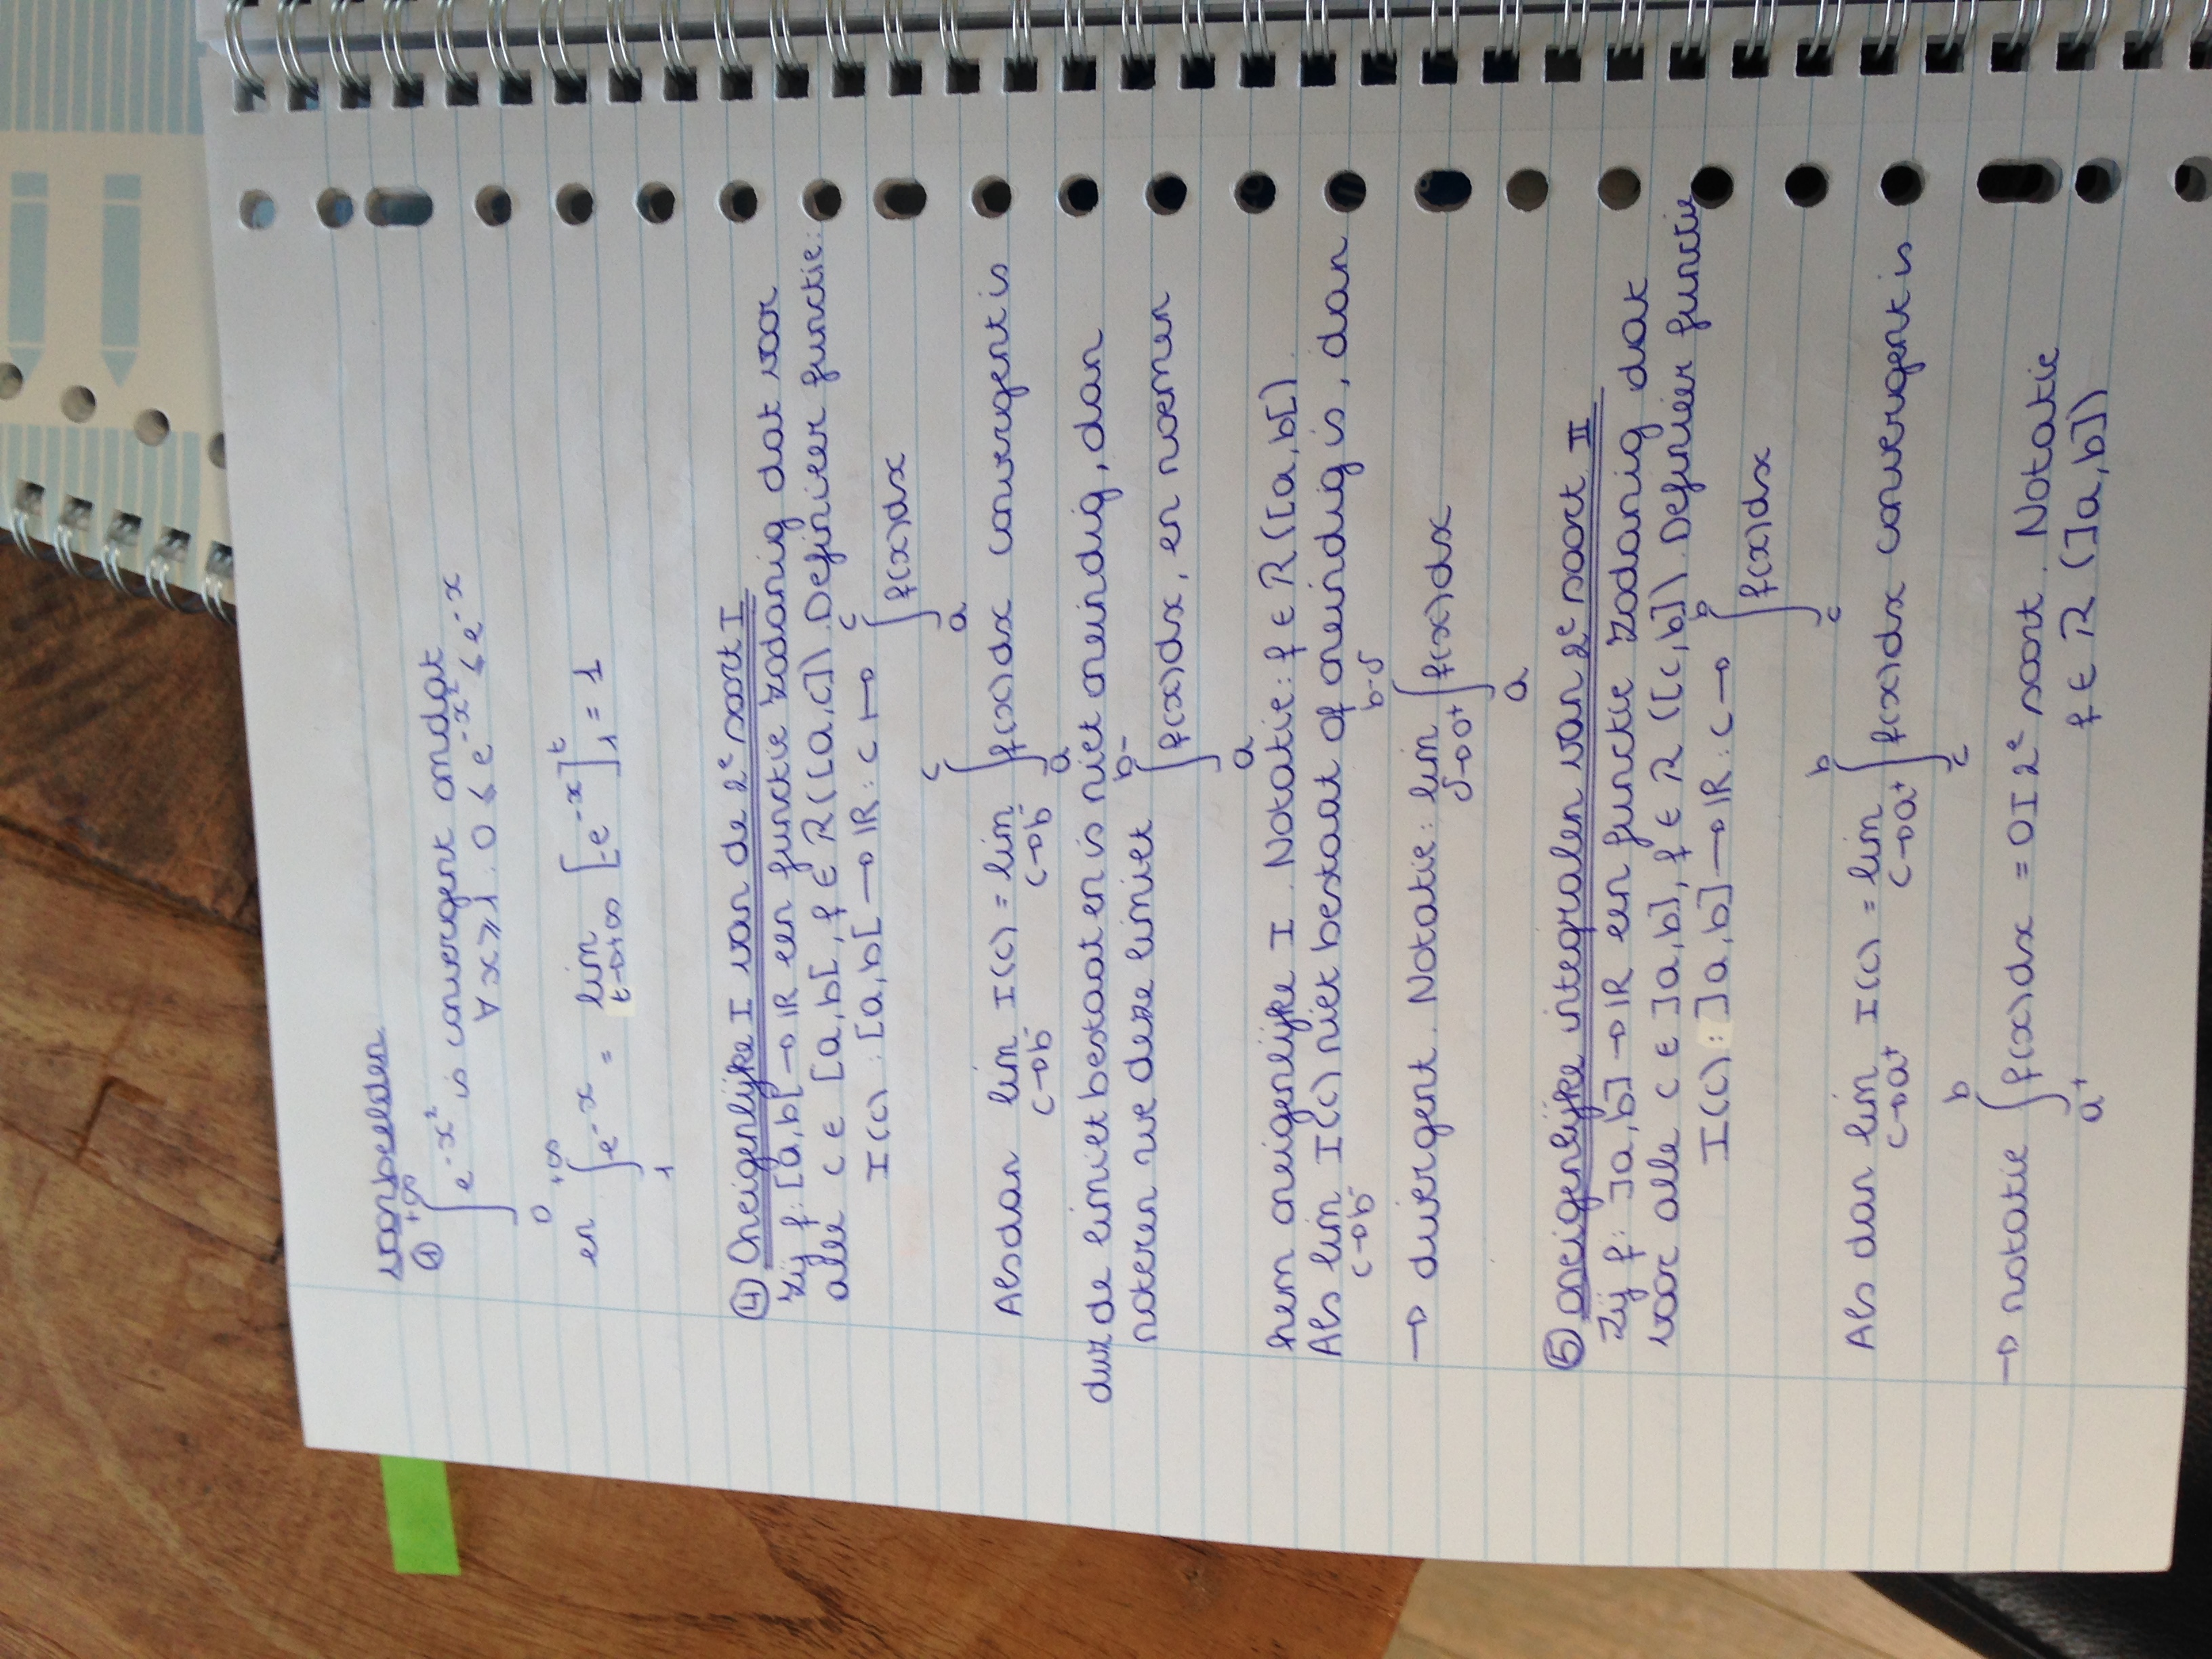 voorbeelden
① ∫₀^{+∞} e^{-x²} is convergent omdat
∀x⩾1 : 0 ≤ e^{-x²} ≤ e^{-x}
en ∫₁^{+∞} e^{-x} = lim_{t→+∞} [-e^{-x}]₁^t = 1
④ Oneigenlijke I van de 2ᵉ soort I
Zij f: [a,b[ → ℝ een functie zodanig dat voor
alle c ∈ [a,b[, f ∈ R([a,c]). Definieer functie:
I(c) : [a,b[ → ℝ : c ↦ ∫_a^c f(x)dx
Alsdan lim_{c→b⁻} I(c) = lim_{c→b⁻} ∫_a^c f(x)dx convergent is
dwz de limiet bestaat en is niet oneindig, dan
noteren we deze limiet ∫_a^{b-} f(x)dx, en noemen
hem oneigenlijke I. Notatie: f ∈ R([a,b[).
Als lim_{c→b⁻} I(c) niet bestaat of oneindig is, dan
→ divergent. Notatie: lim_{δ→0⁺} ∫_a^{b-δ} f(x)dx
⑤ oneigenlijke integralen van 2ᵉ soort II
Zij f: ]a,b] → ℝ een functie zodanig dat
voor alle c ∈ ]a,b], f ∈ R([c,b]). Definieer functie
I(c) : ]a,b] → ℝ : c → ∫_c^b f(x)dx
Als dan lim_{c→a⁺} I(c) = lim_{c→a⁺} ∫_c^b f(x)dx convergent is
→ notatie ∫_{a⁺}^b f(x)dx = OI 2ᵉ soort. Notatie
f ∈ R(]a,b])